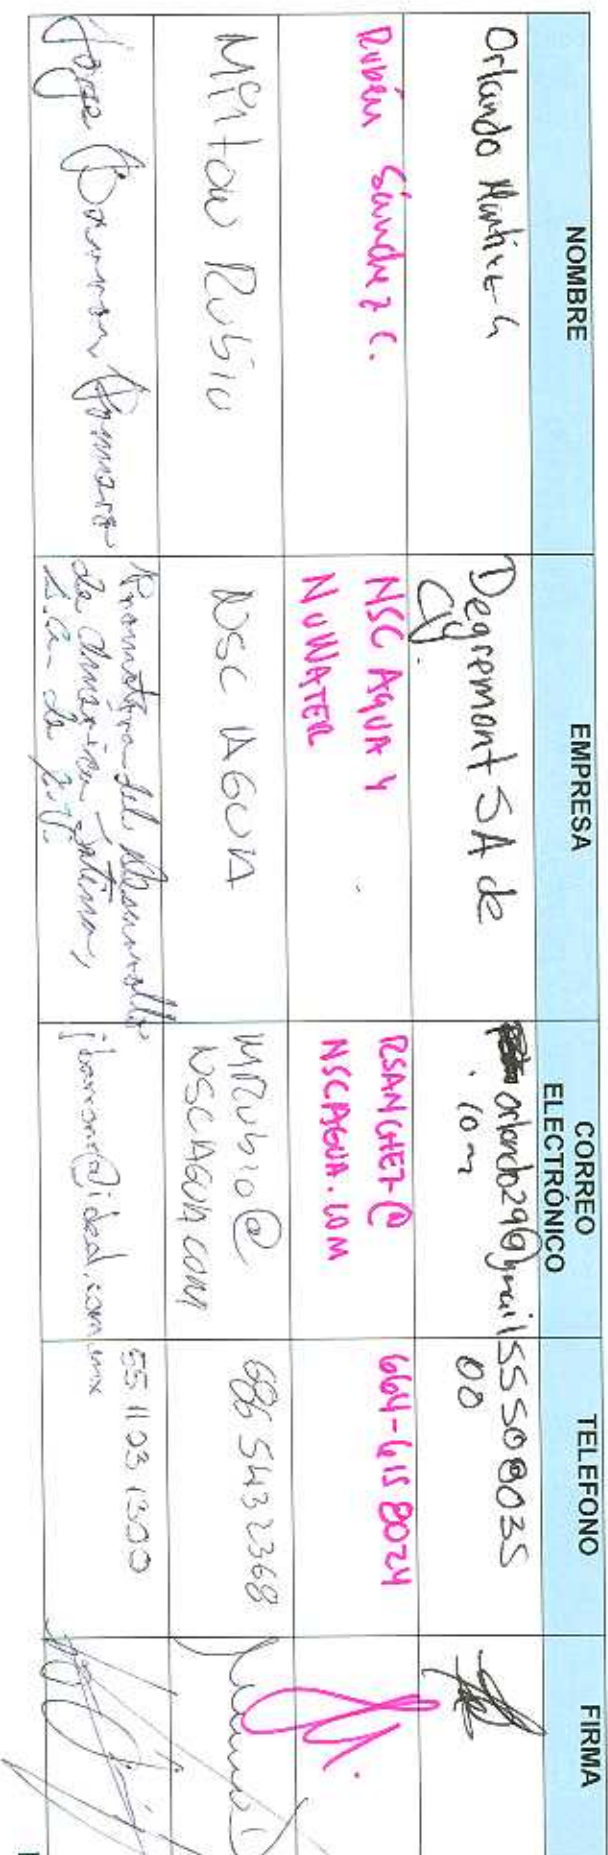 NOMBRE
EMPRESA
CORREO
ELECTRÓNICO
TELEFONO
FIRMA
Orlando
Degremont SA de
CV.
orlando29@gmail
.com
555080035
00
Rubén Sánchez C.
NSC AGUA Y
NuWATER
RSANCHEZ@
NSCAGUA.COM
664-615 8024
Milton Rubio
NSC AGUA
MRubio@
NSCAGUA.COM
686 543 2368
Jorge
Promotora del desarrollo
de America Latina,
S.A. de C.V.
jbarrona@ideal.com.mx
55 11031300